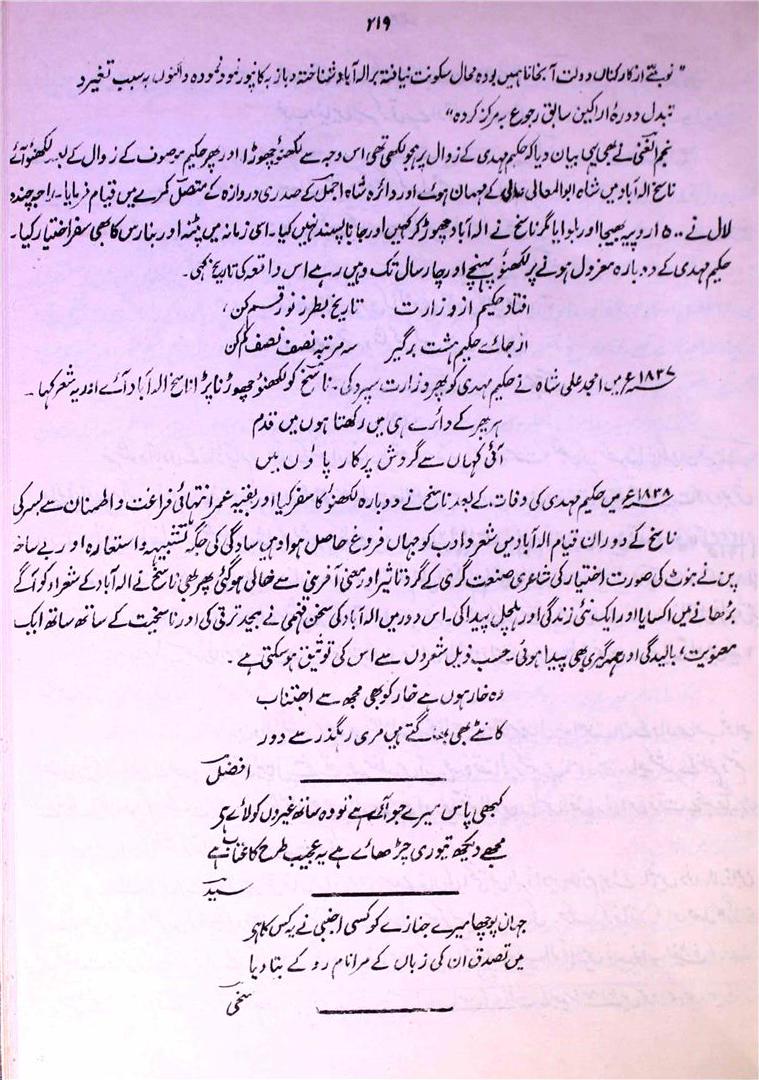 ۲۱۹
"نوبتے از کارکناں دولت آنجا نا ہیں بودہ محال سکونت نیافتہ بر الہ آباد شناختہ و باز بہ کانپور نمود نمودہ والنوں بہ سبب تغیر و
تبدل دورۂ اراکین سابق رجوع بہ مرکز کردہ"
نجم الغنی نے بھی یہی بیان دیا کہ حکیم مہدی کے زوال پر ہجو لکھی تھی اس وجہ سے لکھنؤ چھوڑا اور پھر حکیم موصوف کے زوال کے بعد لکھنؤ آئے
ناسخ الہ آباد میں شاہ ابوالمعالی عالی کے مہمان ہوئے اور دائرہ شاہ اجمل کے صدری دروازہ کے متصل کمرے میں قیام فرمایا۔ راجہ چندو
لال نے ۵۰۰ اروپیہ بھیجا اور بلوایا مگر ناسخ نے الہ آباد چھوڑ کر کہیں اور جانا پسند نہیں کیا۔ اسی زمانہ میں پٹنہ اور بنارس کا بھی سفر اختیار کیا۔
حکیم مہدی کے دوبارہ معزول ہونے پر لکھنؤ پہنچے اور چار سال تک وہیں رہے اس واقعہ کی تاریخ کہی۔
افتاد حکیم از وزارت تاریخ بطرز نو رقم کن،
از جائے حکیم ہشت برگیر سہ مرتبہ نصف نصف کم کن
۱۸۳۷ء میں امجد علی شاہ نے حکیم مہدی کو پھر وزارت سپرد کی۔ ناسخ کو لکھنؤ چھوڑنا پڑا ناسخ الہ آباد آئے اور یہ شعر کہا۔
ہر پھر کے دائرے ہی میں رکھتا ہوں میں قدم
آئی کہاں سے گردش پرکار پاؤں میں
۱۸۳۸ء میں حکیم مہدی کی وفات کے بعد ناسخ نے دوبارہ لکھنؤ کا سفر کیا اور بقیہ عمر انتہائی فراغت و اطمنان سے بسر کی
ناسخ کے دوران قیام الہ آباد میں شعر و ادب کو جہاں فروغ حاصل ہوا وہیں سادگی کی جگہ تشبیہہ و استعارہ اور بے ساختہ
پن نے ہوٹ کی صورت اختیار کی شاعری صنعت گری کے گرد تاثیر اور معنی آفرینی سے خالی ہوگئی پھر بھی ناسخ نے الہ آباد کے شعراء کو آگے
بڑھانے میں اکسایا اور ایک نئی زندگی اور ہلچل پیدا کی۔ اس دور میں الہ آباد کی سخن فہمی نے بیحد ترقی کی اور ناسخیت کے ساتھ ساتھ ایک
معنویت، بالیدگی اور ہمہ گیری بھی پیدا ہوئی۔ حسب ذیل شعروں سے اس کی توثیق ہوسکتی ہے۔
وہ خار ہوں ہے خار کو بھی مجھ سے اجتناب
کانٹے بھی بھاگتے ہیں مری رہگذر سے دور
افضل
کبھی پاس میرے جو آئے ہے نو وہ ساتھ غیروں کو لائے ہر
مجھے دیکھ تیوری چڑھائے ہے یہ عجیب طرح کا عتاب ہے
سید
جہاں پوچھا میرے جنازے کو کسی اجنبی نے یہ کس کا ہر
میں تصدق ان کی زباں کے مرا نام رو کے بتا دیا
سخی